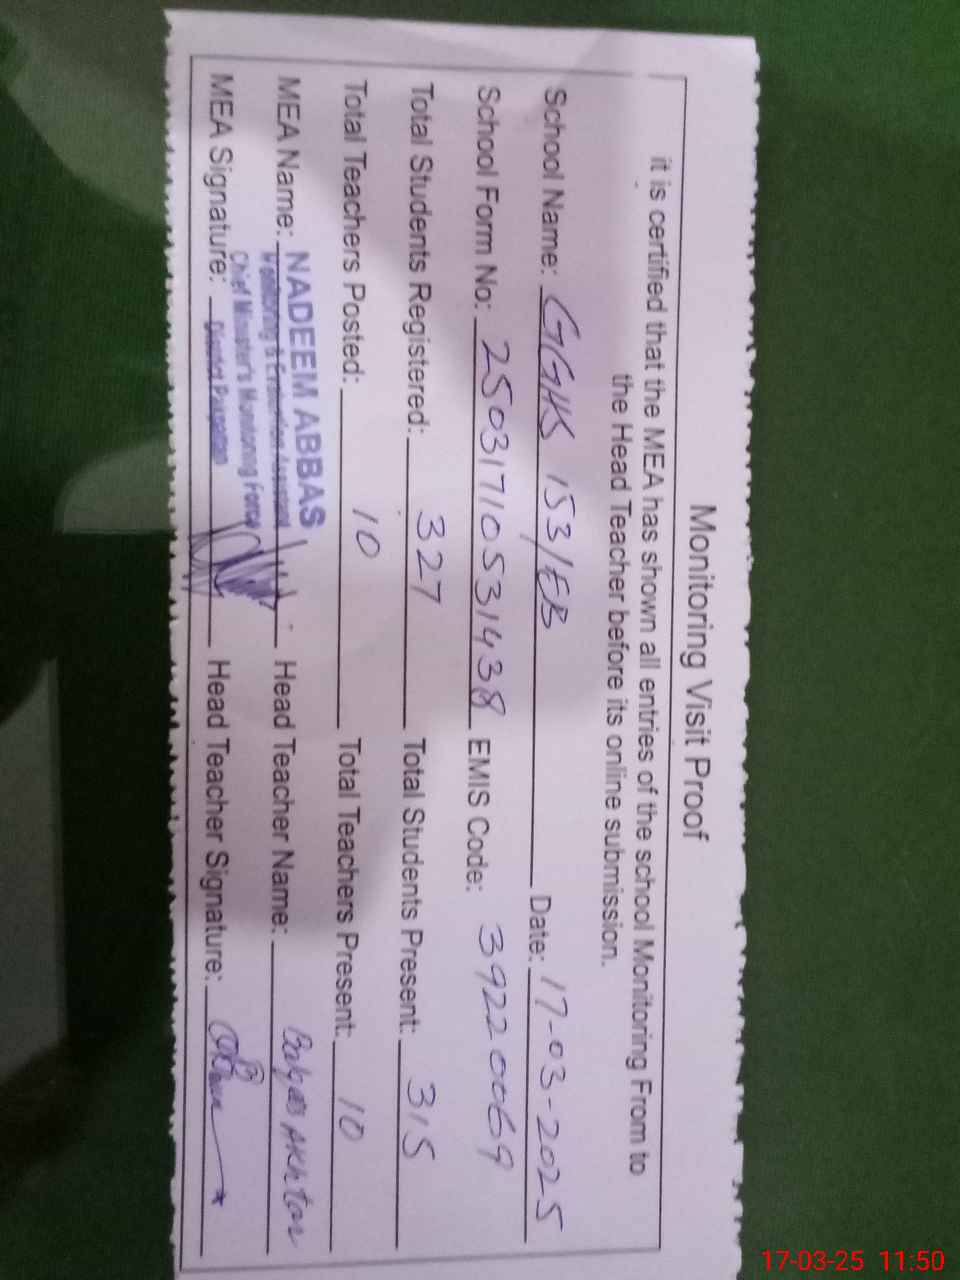 Monitoring Visit Proof
it is certified that the MEA has shown all entries of the school Monitoring From to
the Head Teacher before its online submission.
School Name: GGHS 153/EB Date: 17-03-2025
School Form No: 25031710531438 EMIS Code: 39220069
Total Students Registered: 327 Total Students Present: 315
Total Teachers Posted: 10 Total Teachers Present: 10
MEA Name: NADEEM ABBAS Head Teacher Name: Balqees Akhtar
Monitoring & Evaluation Assistant
Chief Minister's Monitoring Force
MEA Signature: District Pakpattan Head Teacher Signature:
17-03-25 11:50